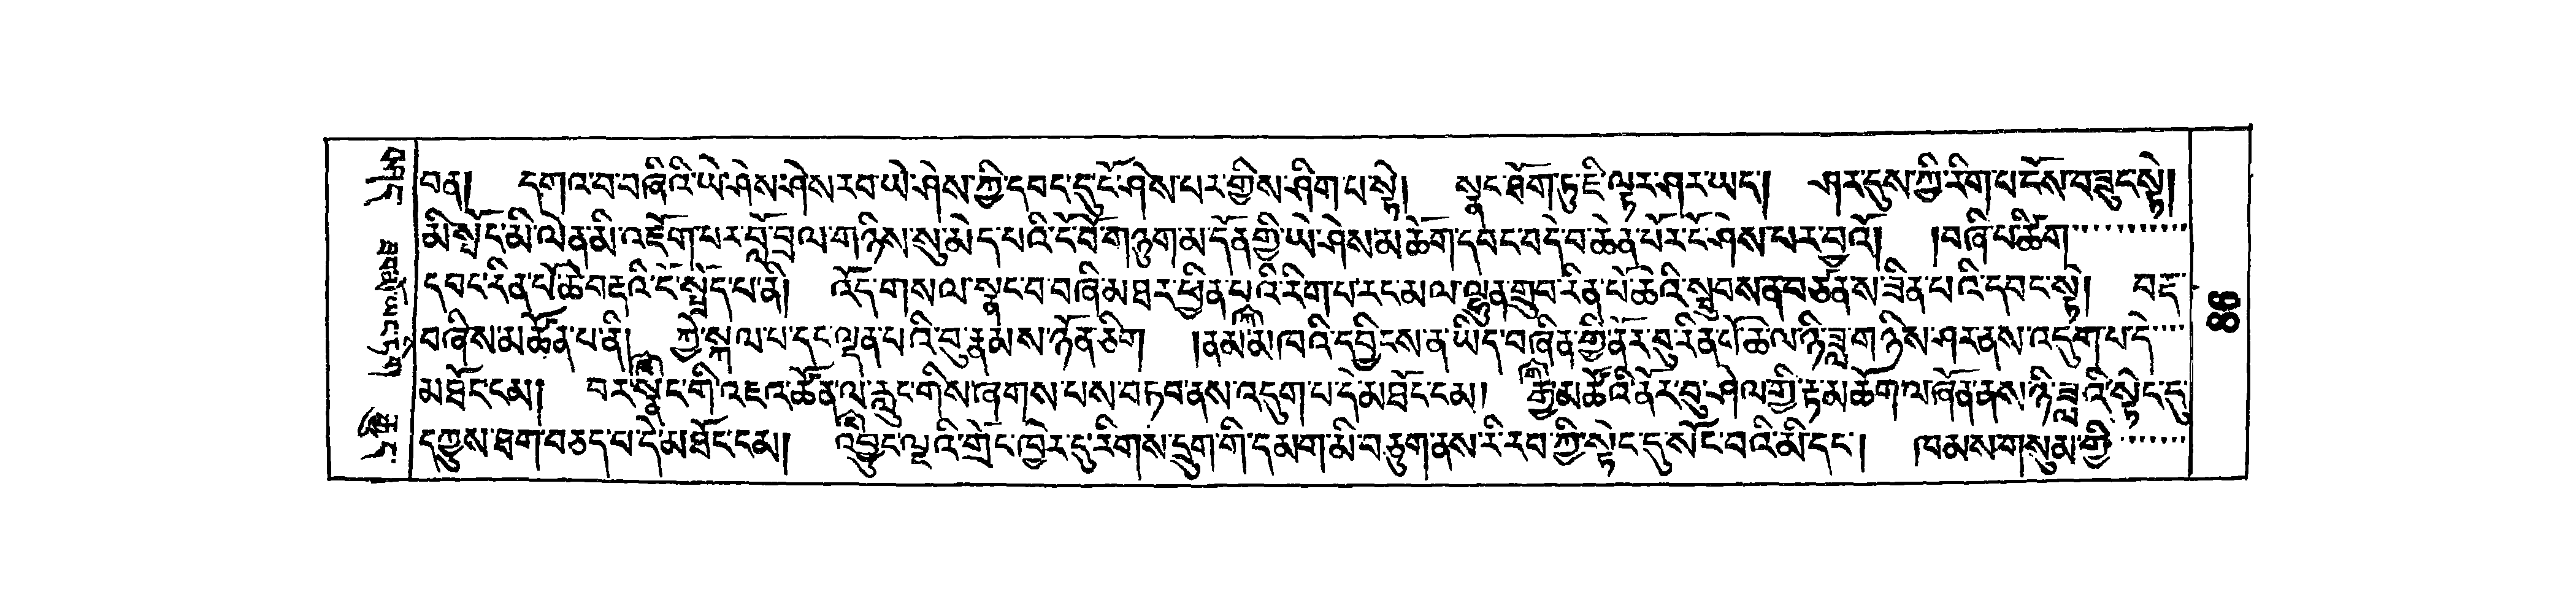 བན།  དགའ་བ་བཞིའི་ཡེ་ཤེས་ཤེས་རབ་ཡེ་ཤེས་ཀྱི་དབང་དུ་ངོ་ཤེས་པར་གྱིས་ཤིག་པ་སྟེ།  སྣང་ཐོག་ཏུ་ཇི་ལྟར་ཤར་ཡང་།  ཤར་དུས་ཀྱི་རིག་པ་ངོས་བཟུང་སྟེ།
མི་སྤོང་མི་ལེན་མི་འཇོག་པར་བློ་བྲལ་གཉིས་སུ་མེད་པའི་ངོ་བོ་གཉུག་མ་དོན་གྱི་ཡེ་ཤེས་མཆོག་དབང་བདེ་བ་ཆེན་པོར་ངོ་ཤེས་པར་བྱའོ།  །བཞི་པ་ཚིག
དབང་རིན་པོ་ཆེ་བརྡའི་ངོ་སྤྲོད་པ་ནི།  འོད་གསལ་སྣང་བ་བཞི་མཐར་ཕྱིན་པའི་རིག་པ་རང་མལ་ལྷུན་གྲུབ་རིན་པོ་ཆེའི་སྦུབས་ན་བཙན་ས་ཟིན་པའི་དབང་སྟེ།  བརྡ་
བཞིས་མཚོན་པ་ནི།  ཀྱེ་སྐལ་པ་དང་ལྡན་པའི་བུ་རྣམས་ཉོན་ཅིག  །ནམ་མཁའི་དབྱིངས་ན་ཡིད་བཞིན་གྱི་ནོར་བུ་རིན་པོ་ཆེ་ལ་ཉི་ཟླ་གཉིས་ཤར་ནས་འདུག་པ་དེ
མཐོང་ངམ།  བར་སྣང་གི་འཇའ་ཚོན་ལ་རླུང་གིས་ཞགས་པས་བཏབ་ནས་འདུག་པ་དེ་མཐོང་ངམ།  རྒྱ་མཚོའི་ནོར་བུ་ཤེལ་གྱི་རྟ་མཆོག་ལ་ཞོན་ནས་ཉི་ཟླའི་སྟེང་དུ་
དཀྱུས་ཐག་བཅད་པ་དེ་མཐོང་ངམ།  འབྱུང་ལྔའི་གྲོང་ཁྱེར་དུ་རིགས་དྲུག་གི་དམག་མི་བཅུག་ནས་རི་རབ་ཀྱི་སྟེང་དུ་སོང་བའི་མི་དང་།  ཁམས་གསུམ་གྱི